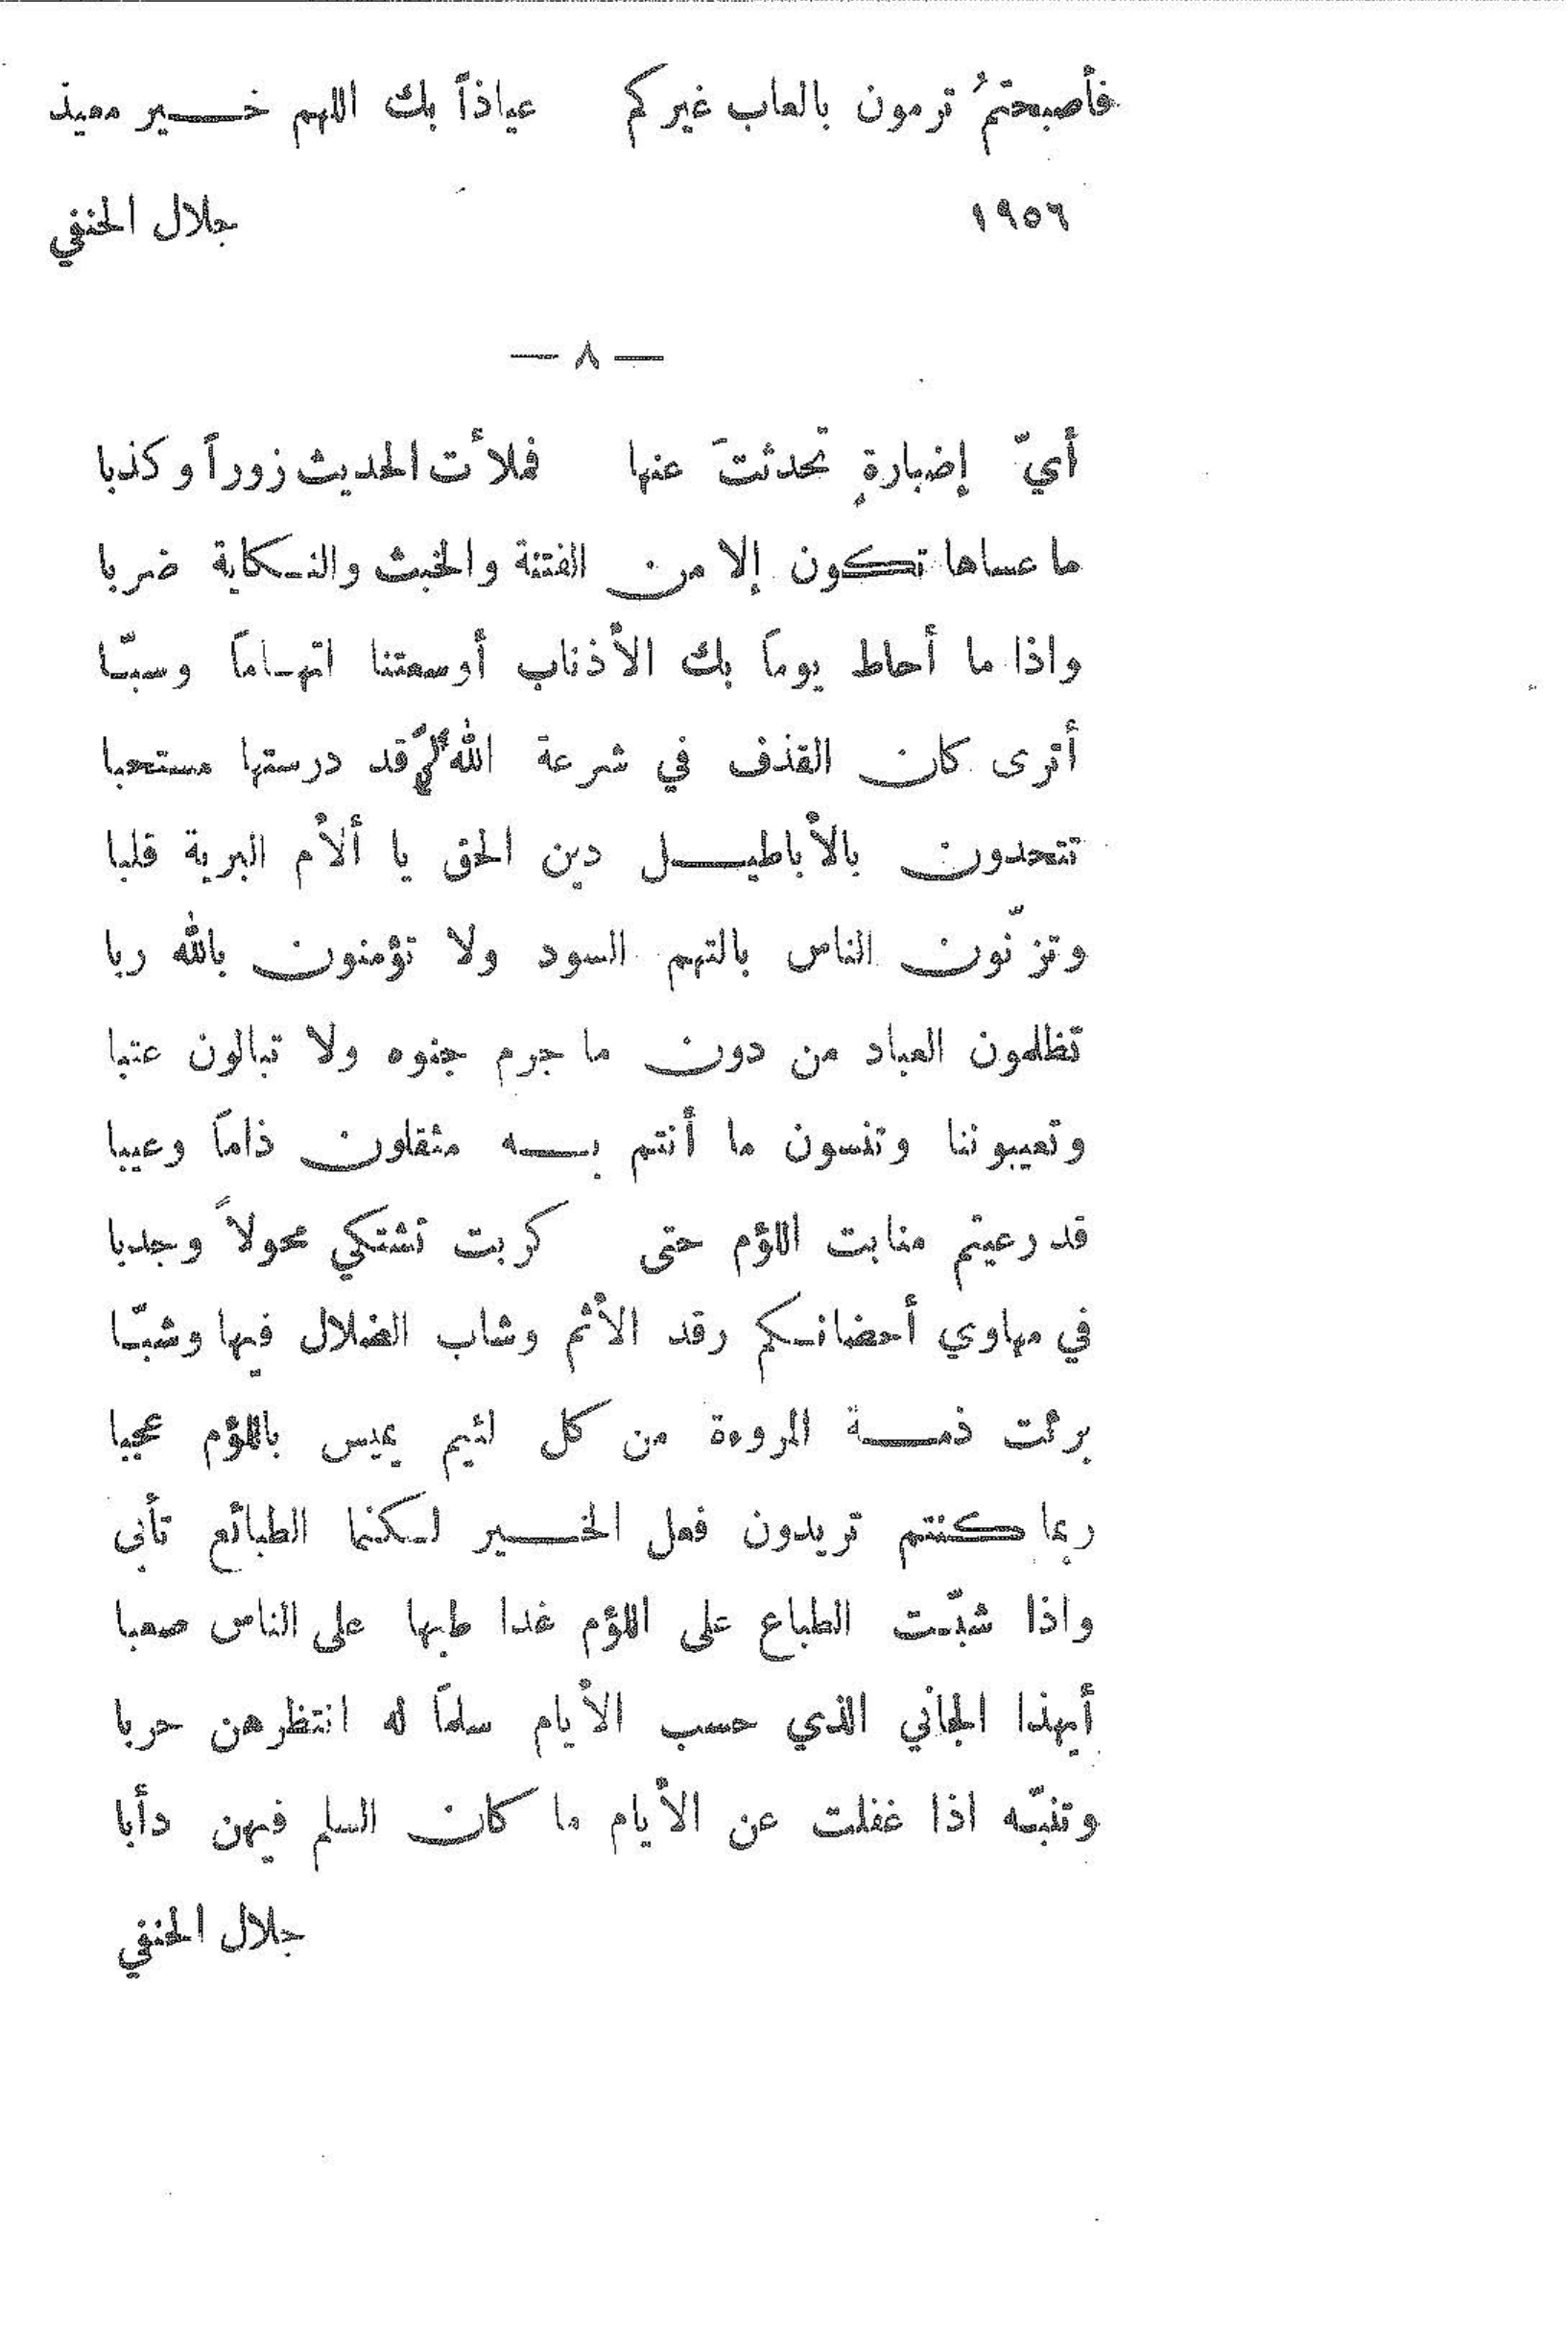 فأصبحتمُ ترمون بالعاب غيركم عياذاً بك اللهم خير معيذ
١٩٥٦ جلال الحنفي
— ٨ —
أيّ إضبارةٍ تحدثتَ عنها فملأت الحديث زوراً وكذبا
ما عساها تكون إلا من الفتنة والخبث والنكاية ضربا
واذا ما أحاط يوماً بك الأذناب أوسعتنا اتهاماً وسبّا
أترى كان القذف في شرعة الله قد درستها مستحبا
تتحدون بالأباطيل دين الحق يا ألأم البرية قلبا
وتزنّون الناس بالتهم السود ولا تؤمنون بالله ربا
تظلمون العباد من دون ما جرم جنوه ولا تبالون عتبا
وتعيبوننا وتنسون ما أنتم به مثقلون ذاماً وعيبا
قد رعيتم منابت اللؤم حتى كربت تشتكي محولاً وجدبا
في مهاوي أحضانكم رقد الأثم وشاب الضلال فيها وشبّا
برئت ذمة المروءة من كل لئيم يميس باللؤم عجبا
ربما كنتم تريدون فعل الخير لكنما الطبائع تأبى
واذا شبّت الطباع على اللؤم غدا طبها على الناس صعبا
أيهذا الجاني الذي حسب الأيام سلماً له انتظرهن حربا
وتنبّه اذا غفلت عن الأيام ما كان السلم فيهن دأبا
جلال الحنفي